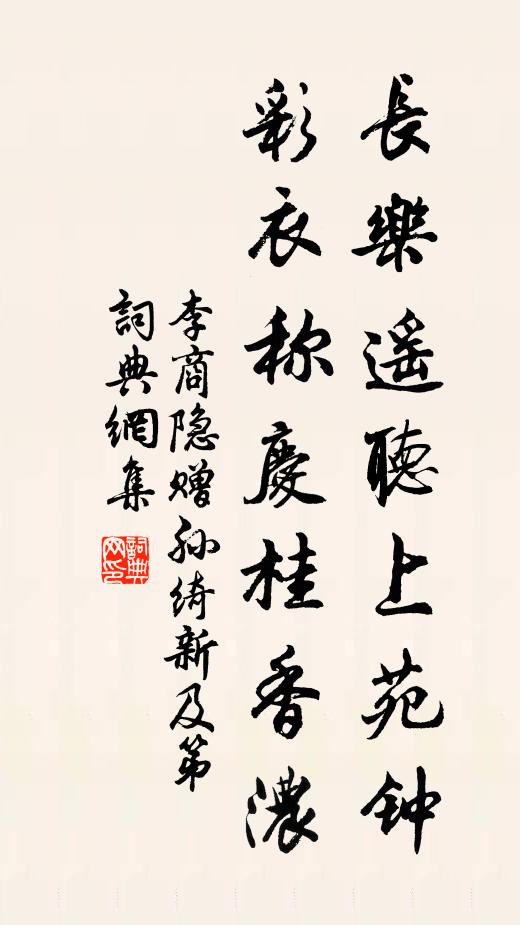 長樂遥聽上苑钟
彩衣称慶桂香濃
李商隐赠孙绮新及第
詞典網集
詞典网印